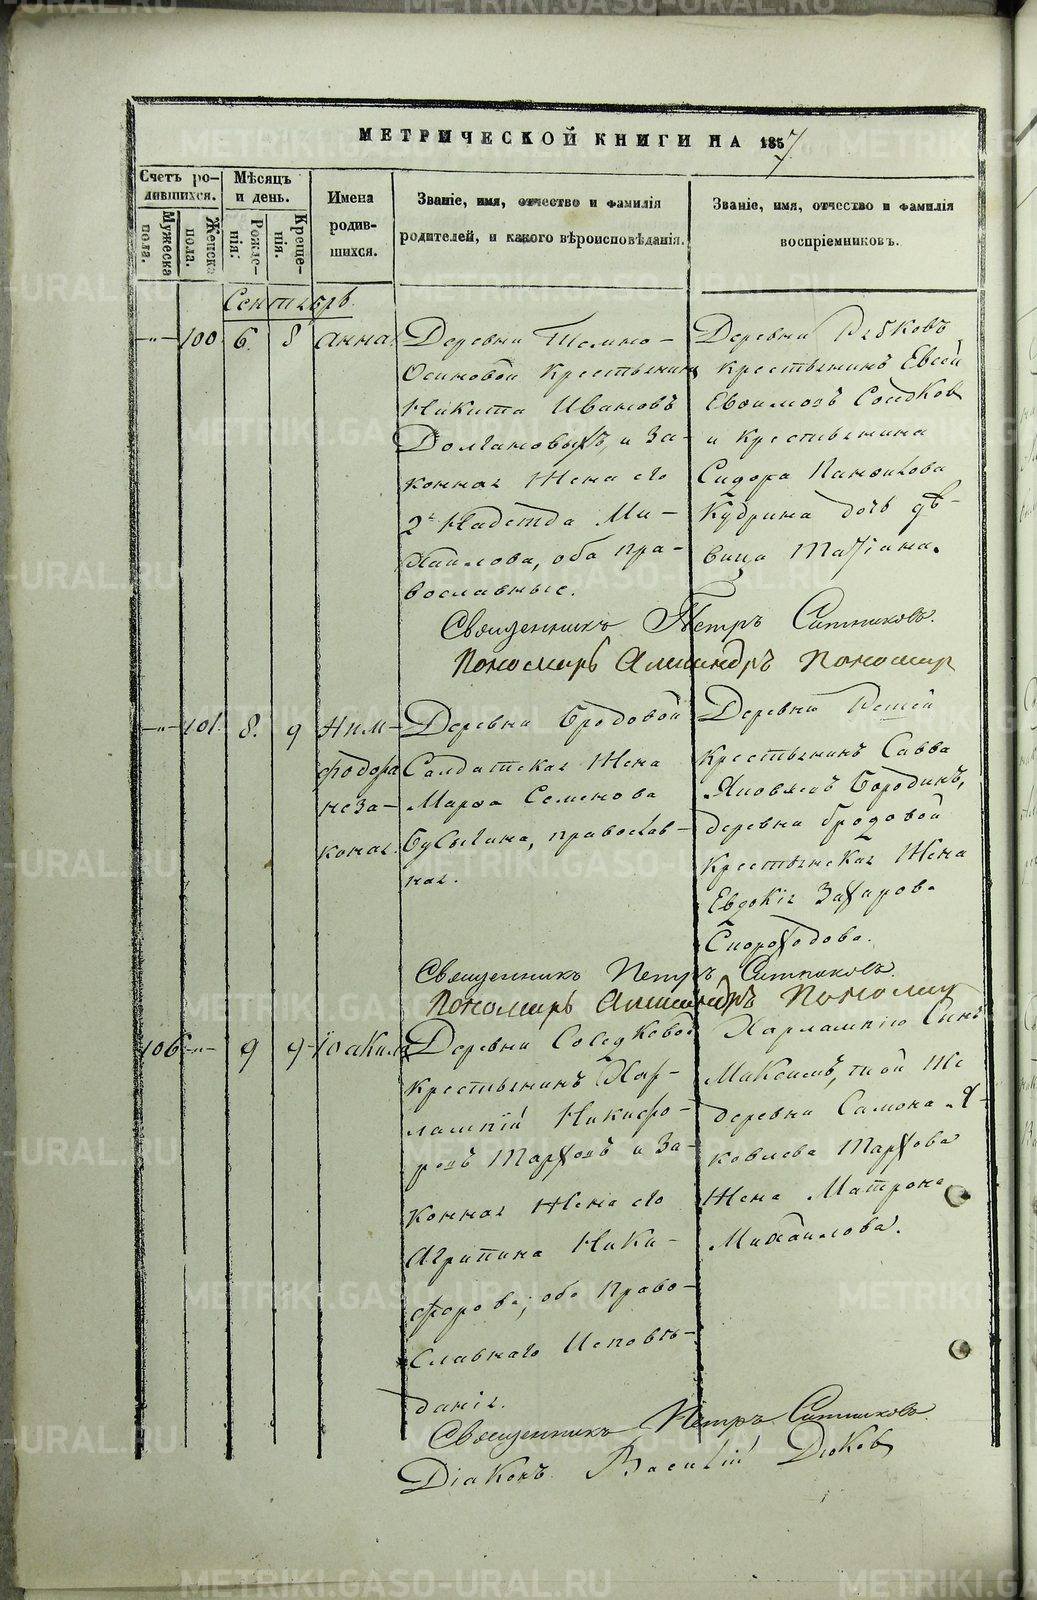 МЕТРИЧЕСКОЙ КНИГИ НА 1857
Счетъ ро-
дившихся.
Мужеска
пола.
Женска
пола.
Мѣсяцъ
и день.
Рожде-
нія.
Креще-
нія.
Имена
родив-
шихся.
Званіе, имя, отчество и фамилія
родителей, и какого вѣроисповѣданія.
Званіе, имя, отчество и фамилія
воспріемниковъ.
Сентябрь.
100 6. 8 Анна
Деревни Темно-
Осиновой крестьянинъ
Никита Ивановъ
Долгановыхъ, и за-
конная жена его
2я Надежда Ми-
хаилова, оба пра-
вославные.
Деревни
крестьянинъ Евсей
Евфимовъ Соедков
и крестьянина
Сидора Панфилова
Кудрина дочь дѣ-
вица Татіана.
Священникъ Петръ Ситниковъ.
Пономарь Александръ Пономар
101. 8. 9 Ним-
фодора
неза-
конная.
Деревни Бродовой
Салдатская жена
Марфа Семенова
Бусыгина, православ-
ная.
Деревни Решей
крестьянинъ Савва
Яковлевъ Бородинъ,
деревни Бродовой
крестьянская жена
Евдокія Захарова
Скороходова.
Священникъ Петръ Ситниковъ.
Пономарь Александръ Пономар
106 9 9 Іоакимъ
Деревни Соедковой
крестьянинъ Хар-
лампій Никифо-
ровъ Тарховъ и за-
конная жена его
Агрипина Ники-
форова, оба Право-
славнаго Исповѣ-
данія.
Харлампіевъ Сынъ
Максимъ, той же
деревни Самона Я-
ковлева Тархова
жена Матрона
Михаилова.
Священникъ Петръ Ситниковъ.
Діаконъ Василій Дюков
METRIKI.GASO-URAL.RU